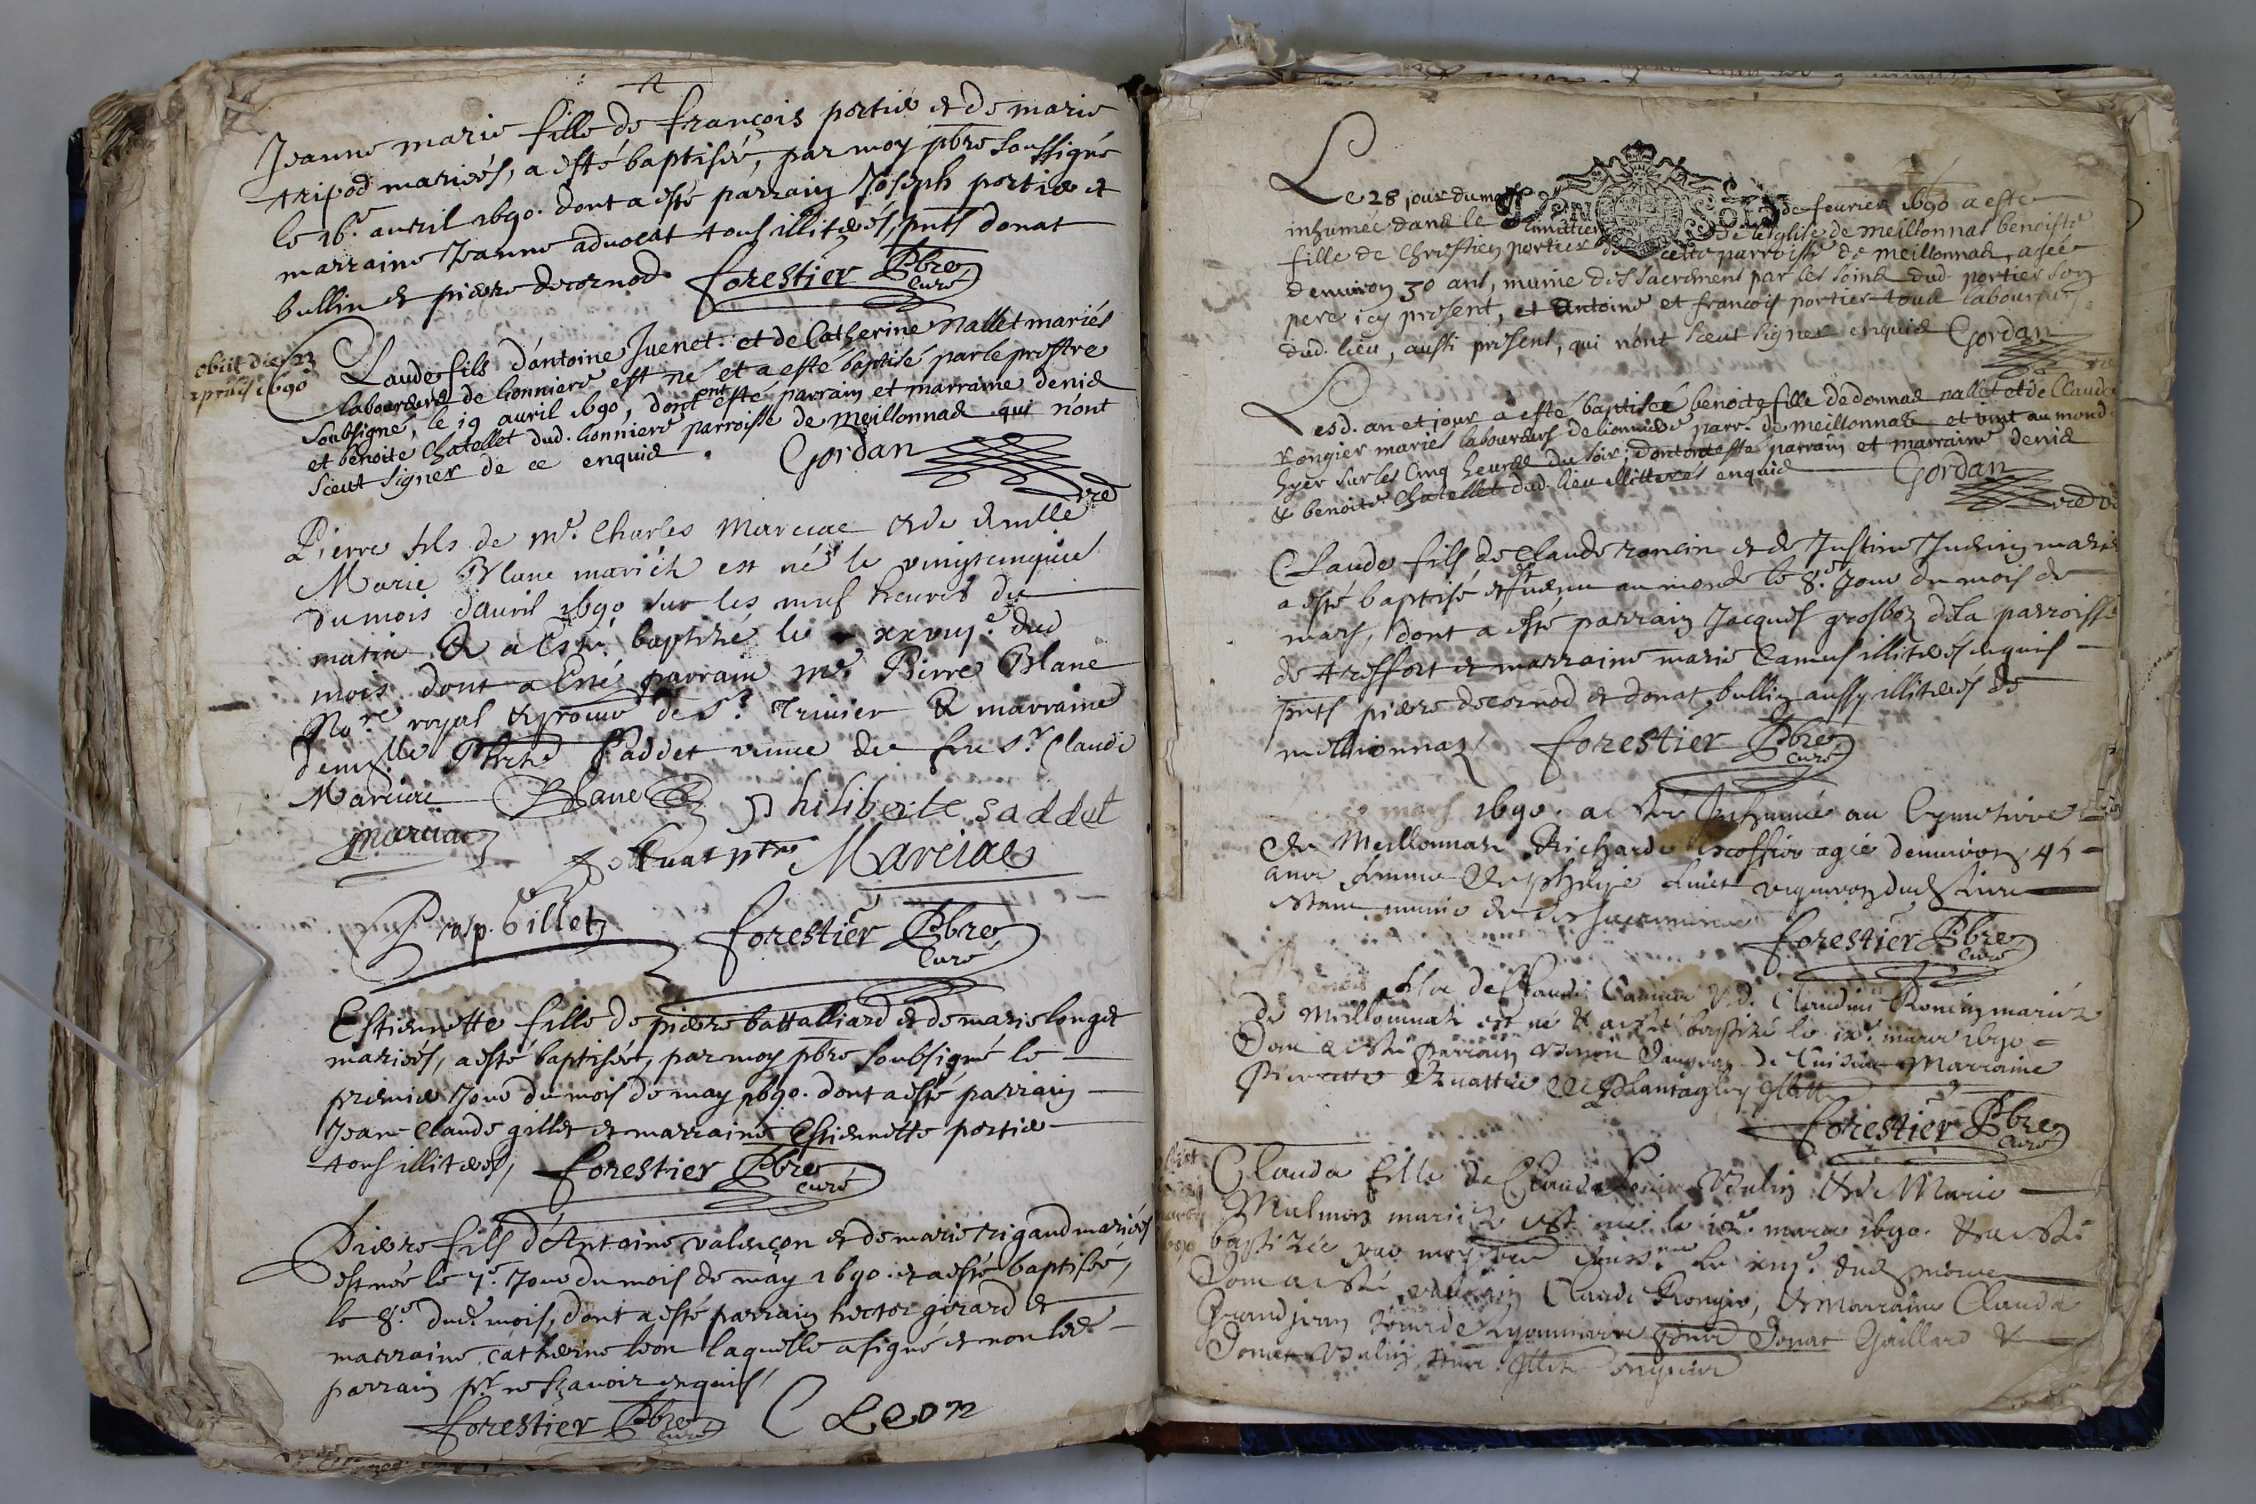 Jeanne marie fille de françois portier et de marie
tripod mariés, a esté baptisée, par moy pbre soussigné
le 16.e avril 1690. dont a esté parrain Joseph portier et
marraine Jeanne advocat tous illiterés, pnts donat
bullin et pierre decornod
forestier Pbre
Curé
obiit die 23
aprilis 1690
Claude fils d'antoine Juenet. et de Catherine nallet mariés
laboureurs de lionniere est né et a esté baptisé par le prestre
soubsigné, le 19 avril 1690, dont ont esté parrain et marraine denis
et benoite Chatellet dud. lionniere parroisse de meillonnas qui n'ont
sceut signer de ce enquis.
Gordan
vre
Pierre fils de Mr. Charles Marciac & de demlle
Marie Blanc mariéz est né le vingtcinquie
du mois d'avril 1690 sur les neuf heures du
matin & a esté baptizé le xxvııȷ.e dud
mois dont a esté parrain Mr. Pierre Blanc
No.re royal & procur de St. Trivier & marraine
demlle Phte Saddet veuve de feu Sr. Claude
Marciac
Blanc
philiberte saddet
marciac
Marciac
Prosp. Gillet
forestier Pbre
Curé
Estiennette fille de pierre battalliard et de marie longet
mariés, a esté baptisée, par moy pbre soubsigné le
premier Jour du mois de may 1690. dont a esté parrain
Jean-Claude gillet et marraine Estiennette portier
tous illiterés,
forestier Pbre
curé
Pierre fils d'Antoine valençon et de marie rigaud mariés
est née le 7.e Jour du mois de may 1690. et a esté baptisée,
le 8.e dud. mois, dont a esté parrain hector girard et
marraine catherine leon laquelle a signé et non led.
parrain pr. ne sçavoir enquis,
forestier Pbre
Curé
C Leon
Le 28 jour du mois de feurier 1690 a este
inhumée dans le Cimitiere de l'eglise de meillonnas benoiste
fille de Chrestien portier de cette parroisse de meillonnas, agée
d'environ 30 ans, munie des sacremens par les soins dud. portier son
pere icy present, et Antoine et francois portier tous laboureurs
dud. lieu, aussi present, qui n'ont sceut signer enquis
Gordan
Lesd. an et jour a esté baptisée benoite fille de donnas nallet et de Claude
rongier mariés laboureurs de lionniere parr. de meillonnas et vint au monde
hyer sur les Cinq heures du soir; dont ont esté parrain et marraine denis
& benoite Chatellet dud. lieu illitterés enquis
Gordan
Claude fils de Claude roncin et de Justine Juenin mariés
a esté baptisé et est venu au monde le 8.e Jour du mois de
mars, dont a esté parrain Jacques grosboz de la parroisse
de treffort et marraine marie Camus illiterés enquis
pnts pierre decornod et donat bullin aussy illiterés de
meillionnaz
forestier Pbre
Curé
mars 1690. a esté Inhumée au Cymetiere
de Meillonnas Richarde escoffier agée d'environ 45
ans femme de philipe vigneron dud. lieu
estant munie de ses sacrements
forestier Pbre
Curé
fils de Claude Camus & de Claudine Roncin mariez
de Meillonnaz est né & a esté baptizé le ix.e mars 1690
Dont a esté parrain de Cuisiat Marraine
Pierrette
forestier Pbre
Curé
Clauda fille de Claude Bulin & de Marie
Mulmon mariéz est née le mars 1690. & a esté
baptizée par moy pbre le xııȷ.e dud. mois
Dont a esté parrain Claude Rongier, & Marraine Clauda
Grandjean de Lyonniere pnts Donat Gaillard &
Donat Bulin enquis